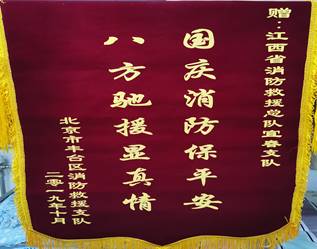 赠：江西省消防救援总队宜春支队
国庆消防保平安
八方驰援显真情
北京市丰台区消防救援支队
二零一九年十月